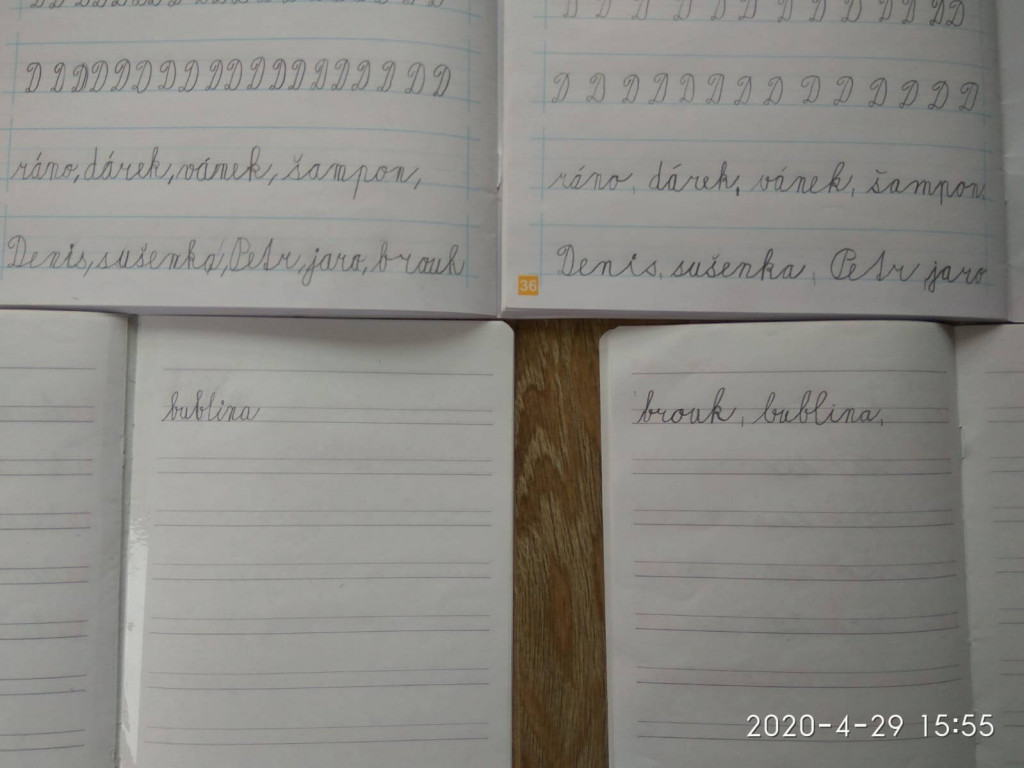 D D D D D D D D D D D D D D D D D D D
ráno, dárek, vánek, šampon,
Denis, sušenka, Petr, jaro, brouk
D D D D D D D D D D D D D
D D D D D D D D D D D D D D
ráno, dárek, vánek, šampon,
Denis, sušenka, Petr, jaro
36
bublina
brouk, bublina,
2020-4-29 15:55